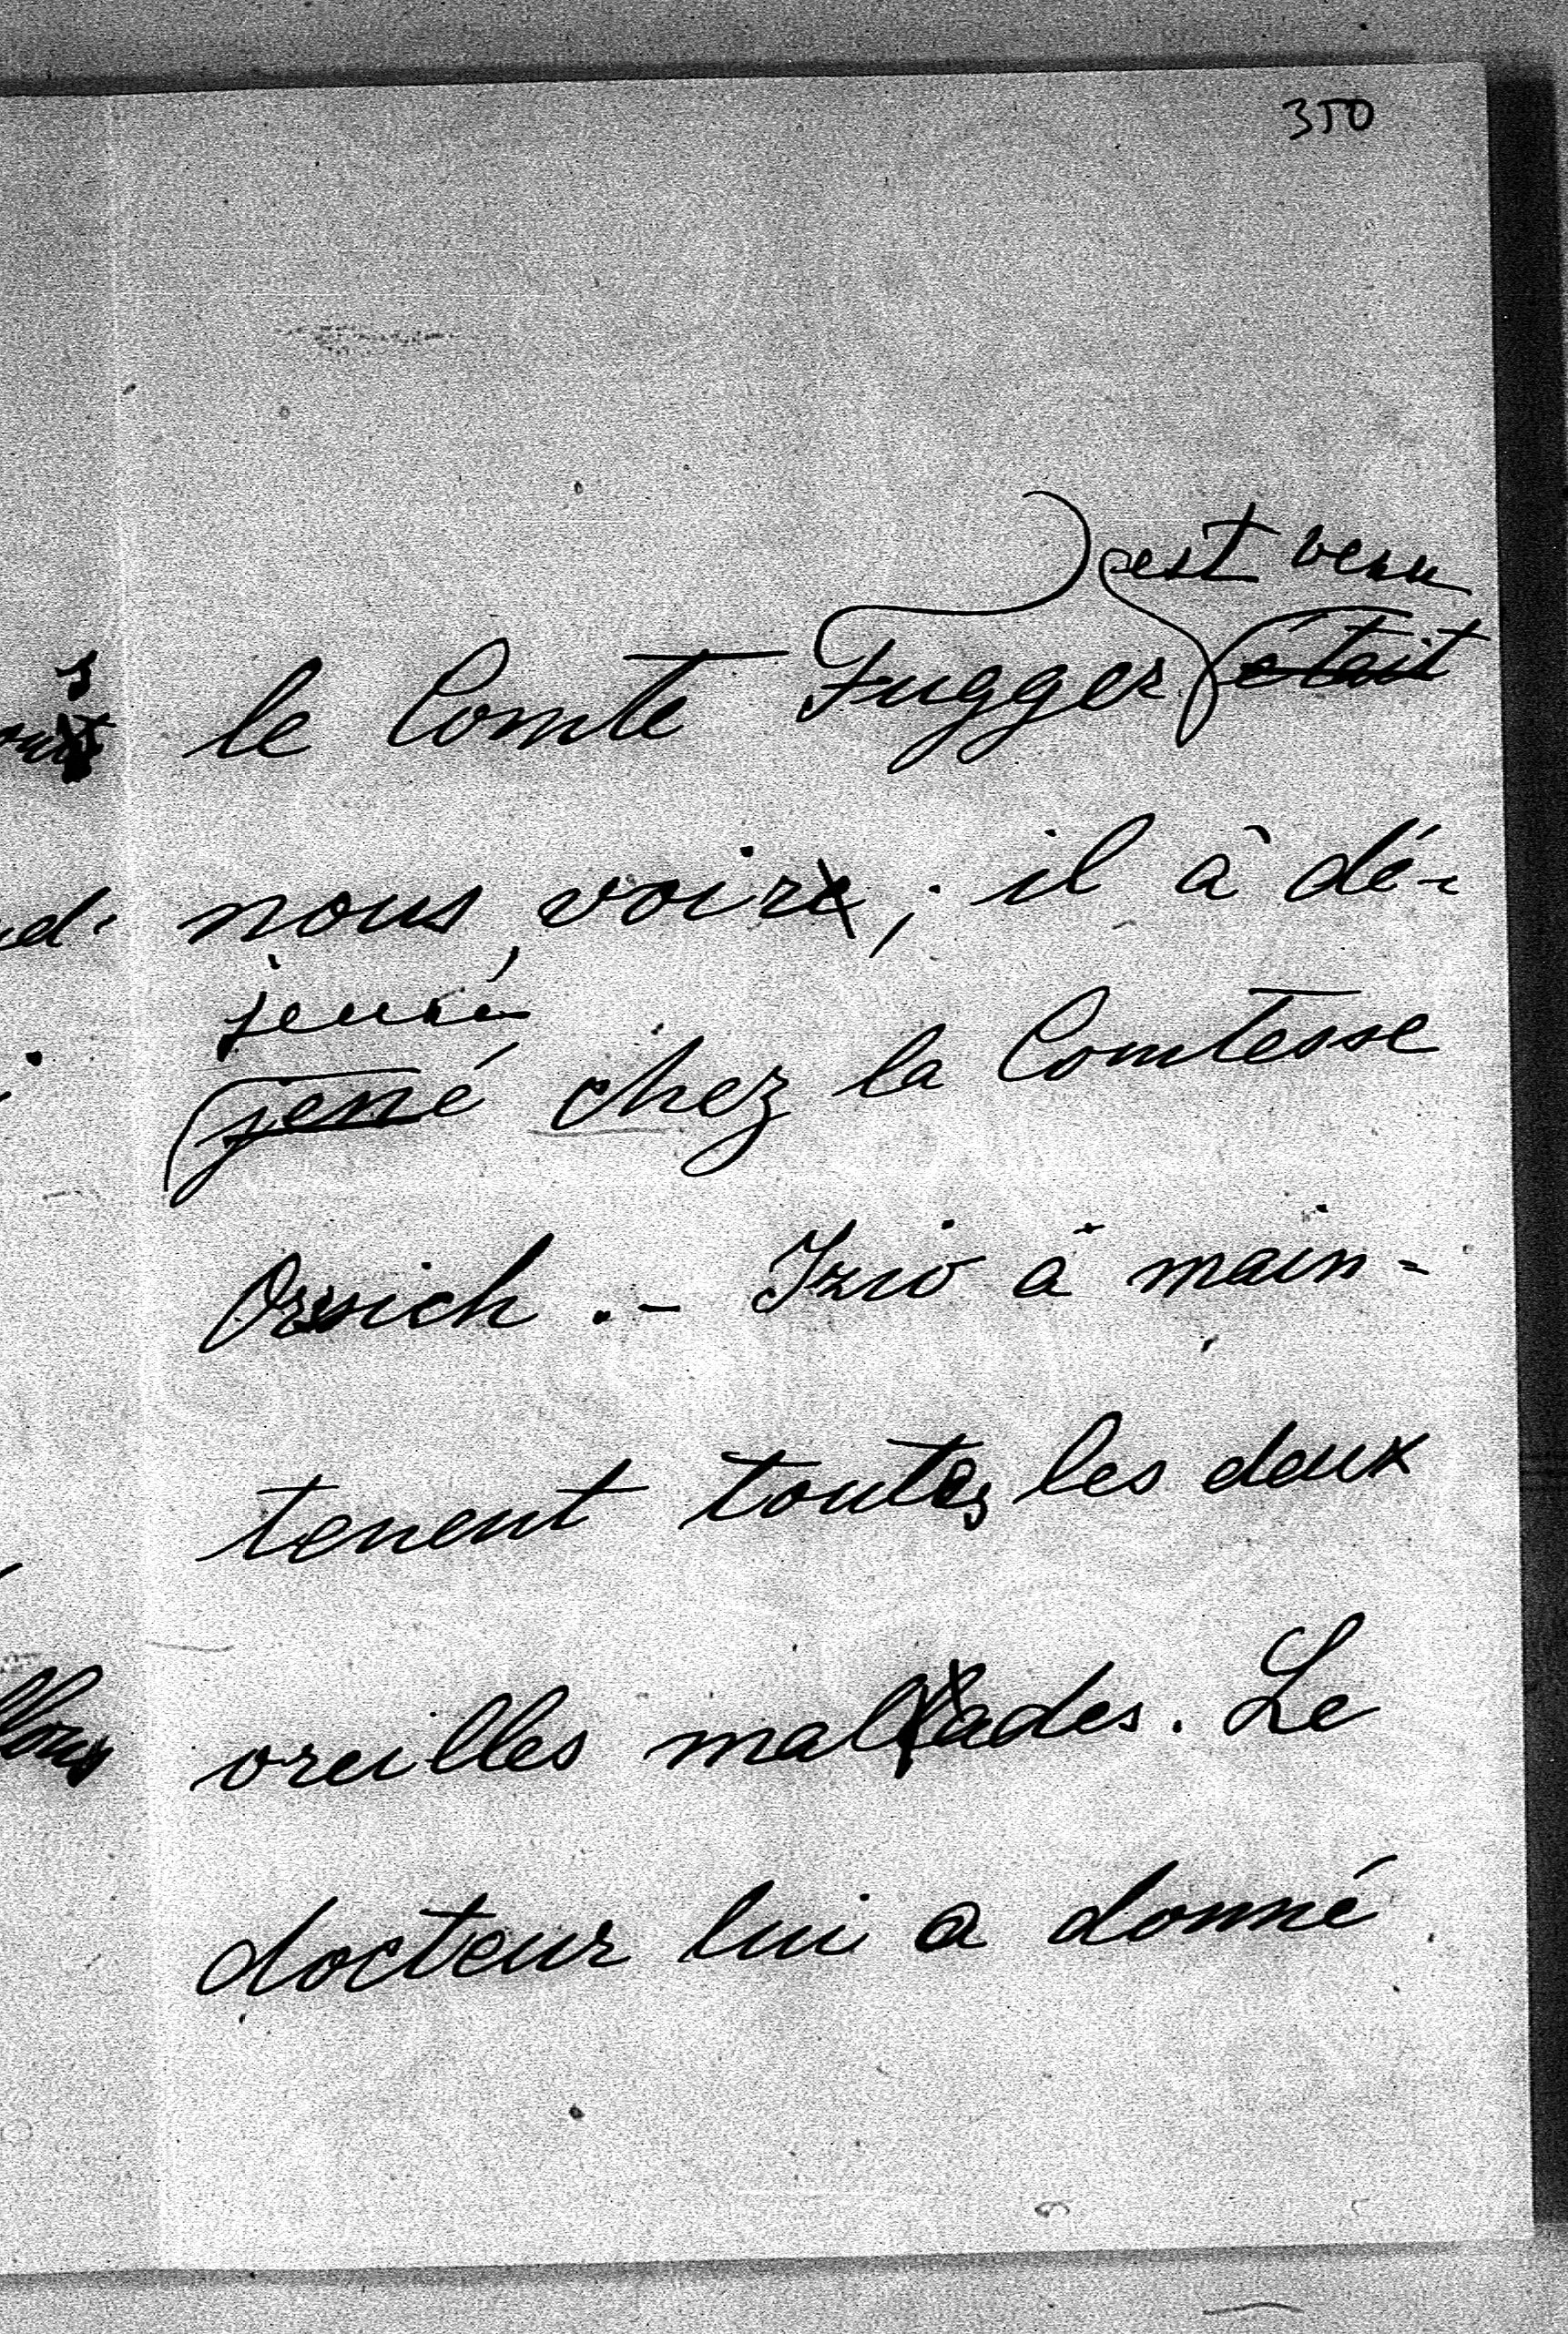 350
est venu
le Comte Fugger était
nous voire; il à dé-
jeuné
jené chez la Comtesse
Orssich. - Izio à main-
tenent toutes les deux
oreilles mallades. Le
docteur lui a donné